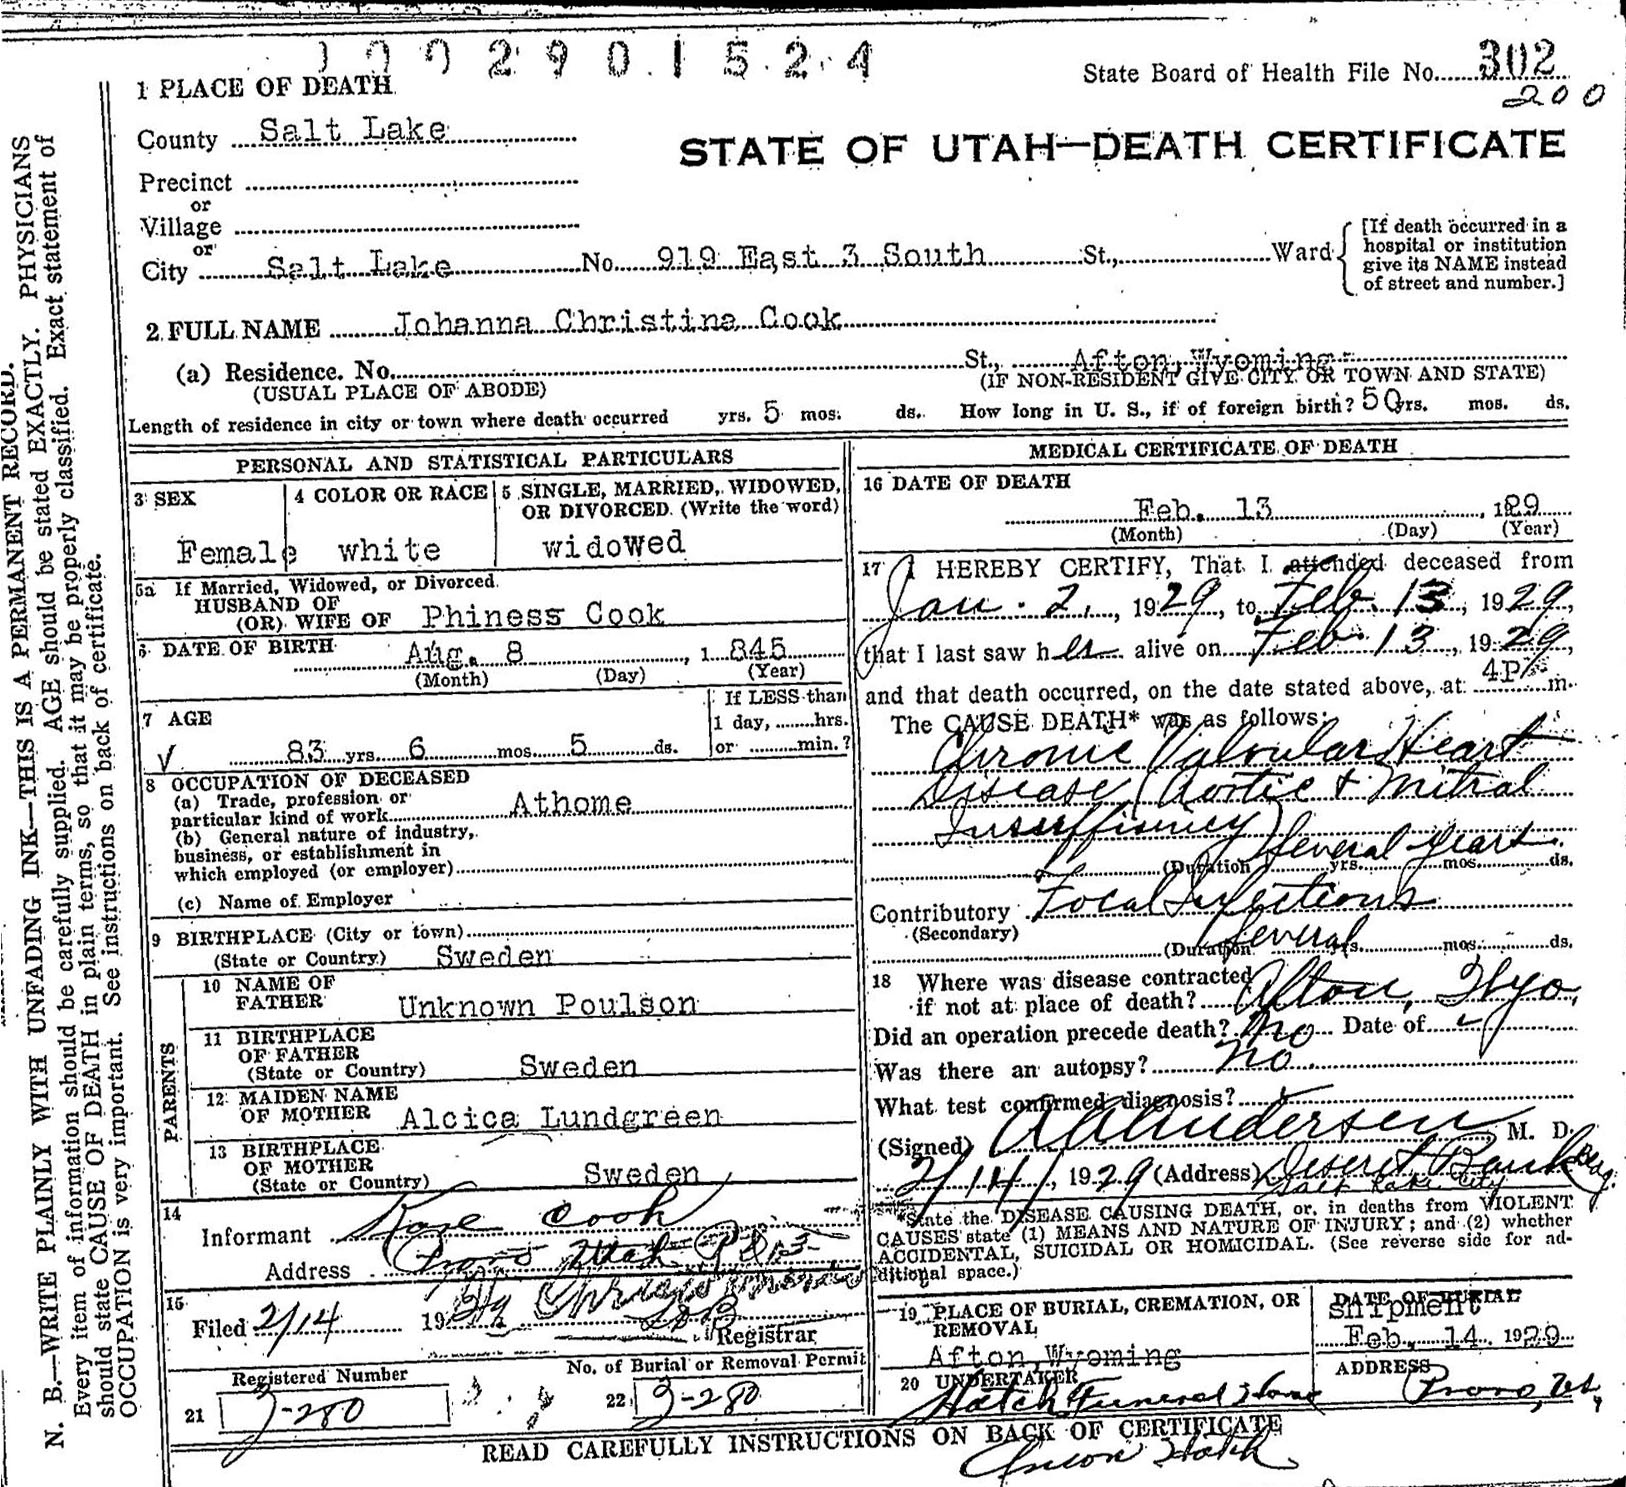 1002901524
State Board of Health File No. 302
200
1 PLACE OF DEATH
County Salt Lake
STATE OF UTAH—DEATH CERTIFICATE
Precinct
or
Village
or
City Salt Lake No. 919 East 3 South St., Ward
[If death occurred in a
hospital or institution
give its NAME instead
of street and number.]
2 FULL NAME Johanna Christina Cook
(a) Residence. No. St., Afton, Wyoming
(USUAL PLACE OF ABODE) (IF NON-RESIDENT GIVE CITY OR TOWN AND STATE)
Length of residence in city or town where death occurred yrs. 5 mos. ds. How long in U. S., if of foreign birth? 50 yrs. mos. ds.
PERSONAL AND STATISTICAL PARTICULARS
3 SEX
Female
4 COLOR OR RACE
white
5 SINGLE, MARRIED, WIDOWED,
OR DIVORCED (Write the word)
widowed
5a If Married, Widowed, or Divorced
HUSBAND OF
(OR) WIFE OF Phiness Cook
6 DATE OF BIRTH Aug. 8, 1845
(Month) (Day) (Year)
7 AGE
83 yrs. 6 mos. 5 ds.
If LESS than
1 day, hrs.
or min.?
8 OCCUPATION OF DECEASED
(a) Trade, profession or
particular kind of work Athome
(b) General nature of industry,
business, or establishment in
which employed (or employer)
(c) Name of Employer
9 BIRTHPLACE (City or town)
(State or Country) Sweden
PARENTS
10 NAME OF
FATHER Unknown Poulson
11 BIRTHPLACE
OF FATHER
(State or Country) Sweden
12 MAIDEN NAME
OF MOTHER Alcica Lundgreen
13 BIRTHPLACE
OF MOTHER
(State or Country) Sweden
14
Informant Rose Cook
Address Provo Utah
15
Filed 2/14 1929
Registrar
Registered Number
21 3-280
No. of Burial or Removal Permit
22 3-280
MEDICAL CERTIFICATE OF DEATH
16 DATE OF DEATH
Feb. 13, 1929
(Month) (Day) (Year)
17 I HEREBY CERTIFY, That I attended deceased from
Jan. 2, 1929, to Feb. 13, 1929,
that I last saw her alive on Feb. 13, 1929,
and that death occurred, on the date stated above, at 4P m.
The CAUSE DEATH* was as follows:
Chronic Valvular Heart
Disease (Aortic & Mitral
Insufficiency)
Several years.
(Duration yrs. mos. ds.
Contributory Focal Infections
(Secondary)
(Duration Several yrs. mos. ds.
18 Where was disease contracted
if not at place of death? Afton, Wyo.
Did an operation precede death? no Date of
Was there an autopsy? no
What test confirmed diagnosis?
(Signed) Andersen M. D.
2/14, 1929 (Address) Deseret Bank Bldg.
Salt Lake City
*State the DISEASE CAUSING DEATH, or, in deaths from VIOLENT
CAUSES state (1) MEANS AND NATURE OF INJURY; and (2) whether
ACCIDENTAL, SUICIDAL OR HOMICIDAL. (See reverse side for ad-
ditional space.)
19 PLACE OF BURIAL, CREMATION, OR
REMOVAL
Afton, Wyoming
DATE OF BURIAL
Shipment
Feb. 14 1929
20 UNDERTAKER
Hatch Funeral Home
ADDRESS
Provo, Ut.
READ CAREFULLY INSTRUCTIONS ON BACK OF CERTIFICATE
Hatch
N. B.—WRITE PLAINLY WITH UNFADING INK—THIS IS A PERMANENT RECORD.
Every item of information should be carefully supplied. AGE should be stated EXACTLY. PHYSICIANS
should state CAUSE OF DEATH in plain terms, so that it may be properly classified. Exact statement of
OCCUPATION is very important. See instructions on back of certificate.